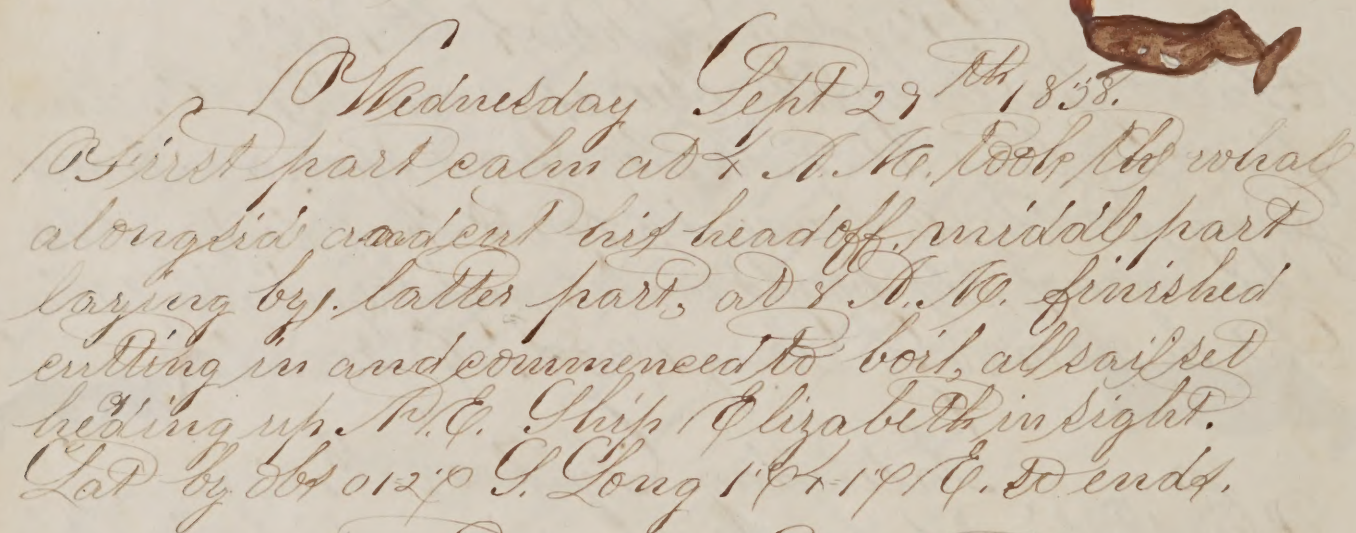 Wednesday Sept 29th 1858.
First part calm at A. M. took the whal
alongsid and cut his head off, middl part
laying by. latter part, at 8 A. M. finished
cutting in and commenced to boil, all sail set
heding up N. E. Ship Elizabeth in sight.
Lat by obs S. Long E. so ends.